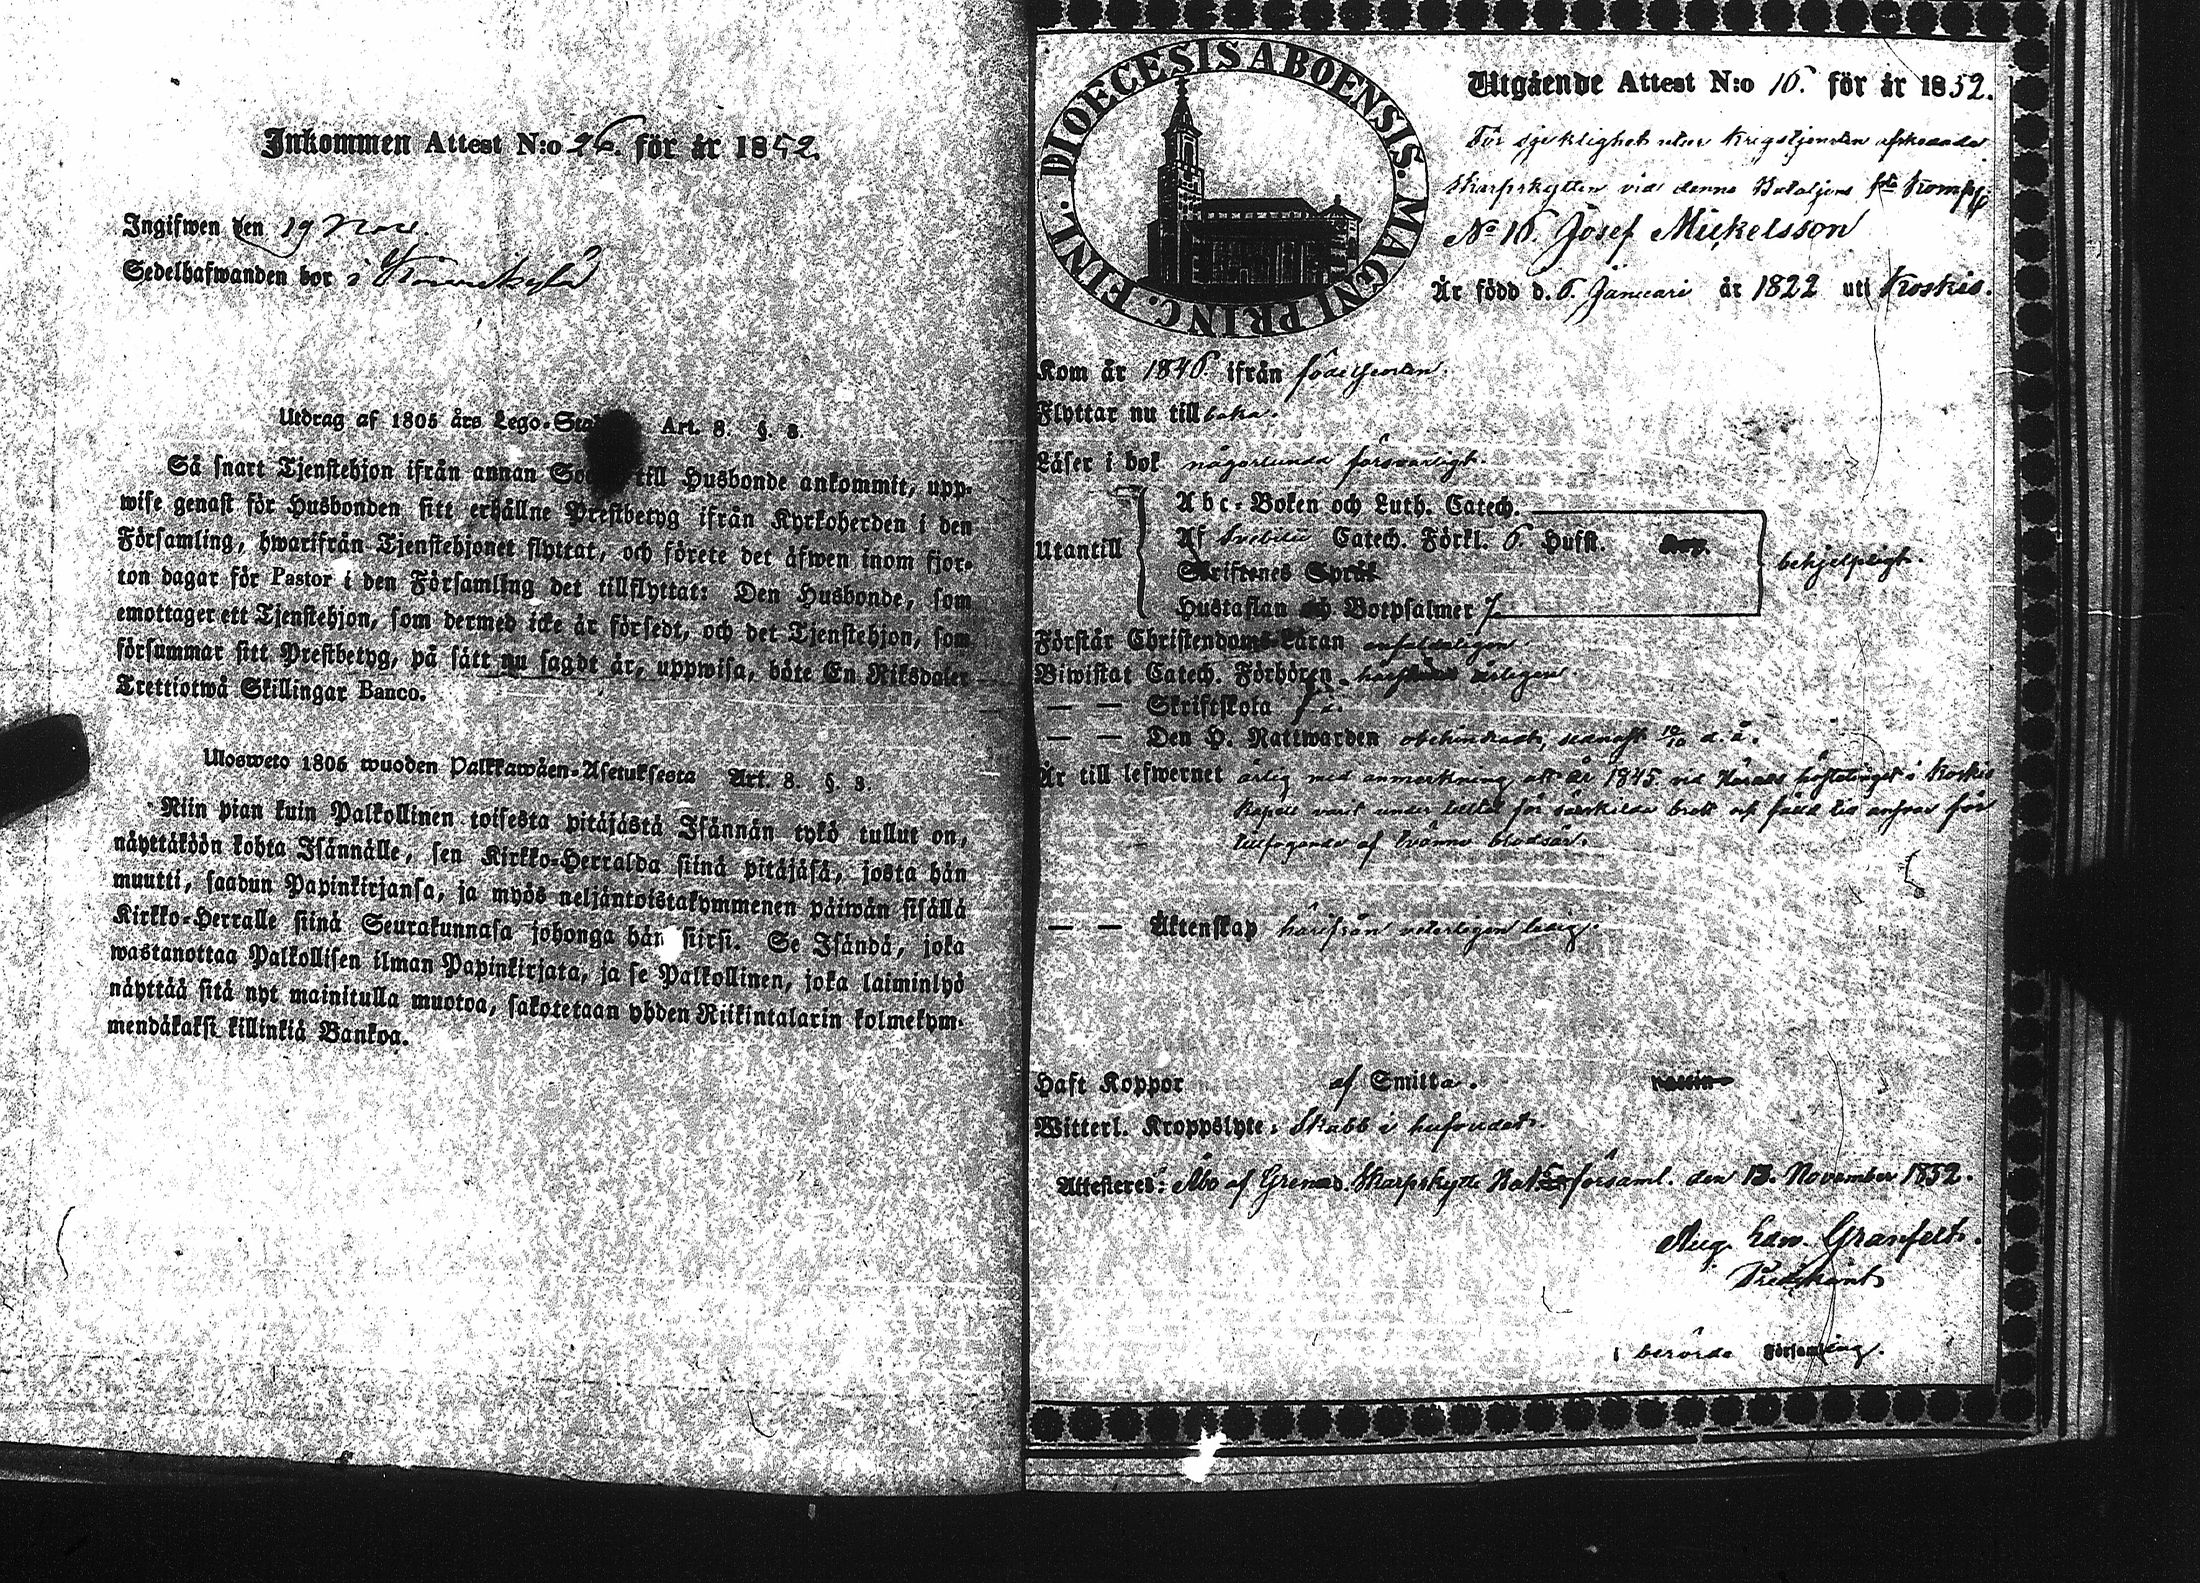 Inkommen Attest N:o 26. för år 1852.
Ingifwen den 19 Nov.
Sedelhafwanden bor i
Utdrag af 1805 års Lego-Sta Art. 8. §. 8.
Så snart Tjenstehjon ifrån annan So till Husbonde ankommit, upp-
wise genast för Husbonden sitt erhållne Prestbetyg ifrån Kyrkoherden i den
Församling, hwarifrån Tjenstehjonet flyttat, och förete det äfwen inom fjor-
ton dagar för Pastor i den Församling det tillflyttat: Den Husbonde, som
emottager ett Tjenstehjon, som dermed icke är försedt, och det Tjenstehjon, som
försummar sitt Prestbetyg, på sätt nu sagdt är, uppwisa, böte En Riksdaler
Trettiotwå Skillingar Banco.
Ulosweto 1805 wuoden Palkkawäen-Asetuksesta Art. 8. §. 8.
Niin pian kuin Palkollinen toisesta pitäjästä Isännän tykö tullut on,
näyttäköön kohta Isännälle, sen Kirkko-Herralda siinä pitäjäsä, josta hän
muutti, saadun Papinkirjansa, ja myös neljäntoistakymmenen päiwän sisällä
Kirkko-Herralle siinä Seurakunnasa johonga hän siirsi. Se Isändä, joka
wastanottaa Palkollisen ilman Papinkirjata, ja se Palkollinen, joka laiminlyö
näyttää sitä nyt mainitulla muotoa, sakotetaan yhden Riikintalarin kolmekym-
mendäkaksi killinkiä Bankoa.
DIOECESIS ABOENSIS. MAGNI PRINC. FINL.
Utgående Attest N:o 16. för år 1852.
För sjuklighet utur Krigstjensten afskedade
Skarpskytten vid denna Bataljons Komp:
No 16. Josef Mickelsson
Är född d. 6. Januari år 1822 uti Koskis.
Kom år 1846 ifrån födelseorten.
Flyttar nu till baka.
Läser i bok någorlunda försvarligt.
Utantill
Abc-Boken och Luth. Catech.
Af Svebilii Catech. Förkl. 6. Hufst.
Skriftenes Språk
Hustaflan och Botpsalmer 7
behjelpligt.
Förstår Christendoms-Läran enfaldeligen
Biwistat Catech. Förhören årligen.
— — Skriftskola
— — Den H. Nattwarden obehindradt, sednast 10/10 d. å.
Är till lefwernet ärlig med anmerkning att år 1845 vid Härads höstetinget i Koskis
Kapell varit under tilltal för särskilda brott och fälld till answar för
tillfogande af tvänne blodsår.
— — Äktenskap härifrån veterligen ledig.
Haft Koppor af Smitta.
Witterl. Kroppslyte: Skabb i hufvudet.
Attesteres: Åbo af Grenad. Skarpskytte Bat:s församl. den 13. November 1852.
Aug. Edw. Granfelt.
Predikant
i berörde Församling.